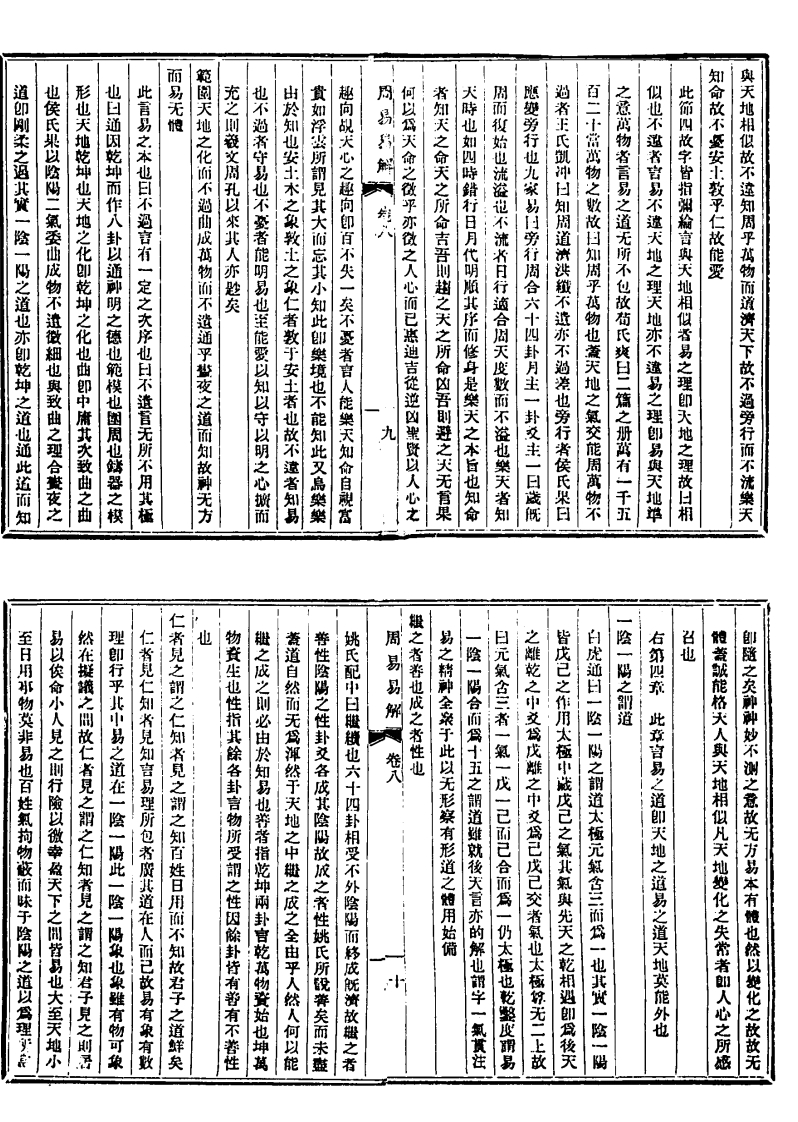 與天地相似故不違知周乎萬物而道濟天下故不過旁行而不流樂天
知命故不憂安土敦乎仁故能愛
此節四故字皆指彌綸言與天地相似者易之理卽天地之理故曰相
似也不違者言易不違天地之理天地亦不違易之理卽易與天地準
之意萬物者言易之道无所不包故荀氏爽曰二篇之册萬有一千五
百二十當萬物之數故曰知周乎萬物也蓋天地之氣交能周萬物不
過者王氏凱冲曰知周道濟洪纖不遺亦不過差也旁行者侯氏果曰
應變旁行也九家易曰旁行周合六十四卦月主一卦爻主一日歲旣
周而復始也流溢也不流者日行適合周天度數而不溢也樂天者知
天時也如四時錯行日月代明順其序而修身是樂天之本旨也知命
者知天之命天之所命吉吾則趨之天之所命凶吾則避之天无言果
何以爲天命之徵乎亦徵之人心而已惠迪吉從逆凶聖賢以人心之
周易易解
卷八
九
趣向覘天心之趣向卽百不失一矣不憂者言人能樂天知命自視富
貴如浮雲所謂見其大而忘其小知此卽樂境也不能知此又烏樂樂
由於知也安土木之象敦土之象仁者敦于安土者也故不違者知易
也不過者守易也不憂者能明易也至能愛以知以守以明之心擴而
充之則羲文周孔以來其人亦尠矣
範圍天地之化而不過曲成萬物而不遺通乎晝夜之道而知故神无方
而易无體
此言易之本也曰不過言有一定之次序也曰不遺言无所不用其極
也曰通因乾坤而作八卦以通神明之德也範模也圍周也鑄器之模
形也天地乾坤也天地之化卽乾坤之化也曲卽中庸其次致曲之曲
也侯氏果以陰陽二氣委曲成物不遺微細也與致曲之理合晝夜之
道卽剛柔之過其實一陰一陽之道也亦卽乾坤之道也通此道而知
卽隨之矣神神妙不測之意故无方易本有體也然以變化之故故无
體蓋誠能格天人與天地相似凡天地變化之失常者卽人心之所感
召也
右第四章 此章言易之道卽天地之道易之道天地莫能外也
一陰一陽之謂道
白虎通曰一陰一陽之謂道太極元氣含三而爲一也其實一陰一陽
皆戊己之作用太極中藏戊己之氣其氣與先天之乾相遇卽爲後天
之離乾之中爻爲戊離之中爻爲己戊己交者氣也太極尊无二上故
曰元氣含三者一氣一戊一己而己合而爲一仍太極也乾鑿度謂易
一陰一陽合而爲十五之謂道雖就後天言亦的解也謂字一氣貫注
易之精神全聚于此以无形察有形道之體用始備
繼之者善也成之者性也
周易易解
卷八
十
姚氏配中曰繼續也六十四卦相受不外陰陽而終成旣濟故繼之者
善性陰陽之性卦爻各成其陰陽故成之者性姚氏所說善矣而未盡
蓋道自然而无爲渾然于天地之中繼之成之全由乎人然人何以能
繼之成之則必由於知易也善者指乾坤兩卦言乾萬物資始也坤萬
物資生也性指其餘各卦言物所受謂之性因餘卦皆有善有不善性
也
仁者見之謂之仁知者見之謂之知百姓日用而不知故君子之道鮮矣
仁者見仁知者見知言易理所包者廣其道在人而已故易有象有數
理卽行乎其中易之道在一陰一陽此一陰一陽象也象雖有物可象
然在擬議之間故仁者見之謂之仁知者見之謂之知君子見之則居
易以俟命小人見之則行險以徼幸盈天下之間皆易也大至天地小
至日用耶物莫非易也百姓氣拘物蔽而昧于陰陽之道以爲理